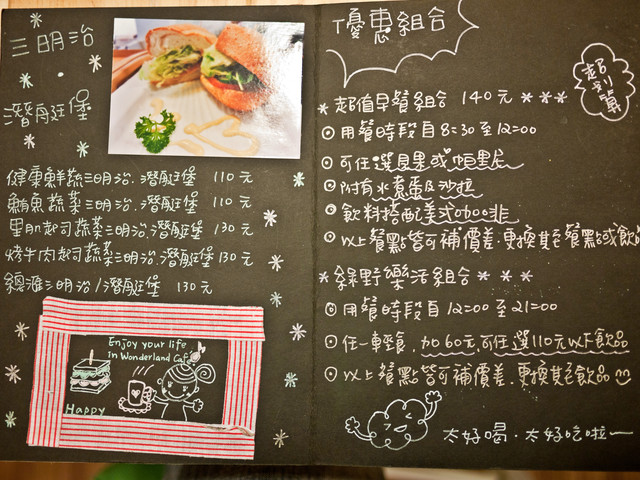 三明治
潛艇堡
健康鮮蔬三明治、潛艇堡 110元
鮪魚蔬菜三明治、潛艇堡 110元
里肌起司蔬菜三明治、潛艇堡 130元
烤牛肉起司蔬菜三明治、潛艇堡 130元
總滙三明治/潛艇堡 130元
Enjoy your life
in Wonderland Café
Happy
優惠組合
超划算
超值早餐組合 140元
用餐時段自8:30至12:00
可任選貝果或帕里尼
附有水煮蛋及沙拉
飲料搭配美式咖啡
以上餐點皆可補價差、更換其它餐點或飲
綠野樂活組合
用餐時段自12:00至21:00
任一輕食,加60元,可任選110元以下飲品
以上餐點皆可補價差、更換其它飲品
太好喝、太好吃啦~